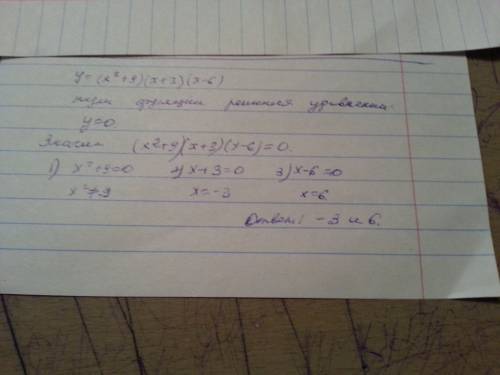 y=(x²+9)(x+3)(x-6)
нули функции решения уравнения.
y=0
Значит (x²+9)(x+3)(x-6)=0.
1) x²+9=0 2) x+3=0 3) x-6=0
x²≠9 x=-3 x=6
Ответ: -3 и 6.